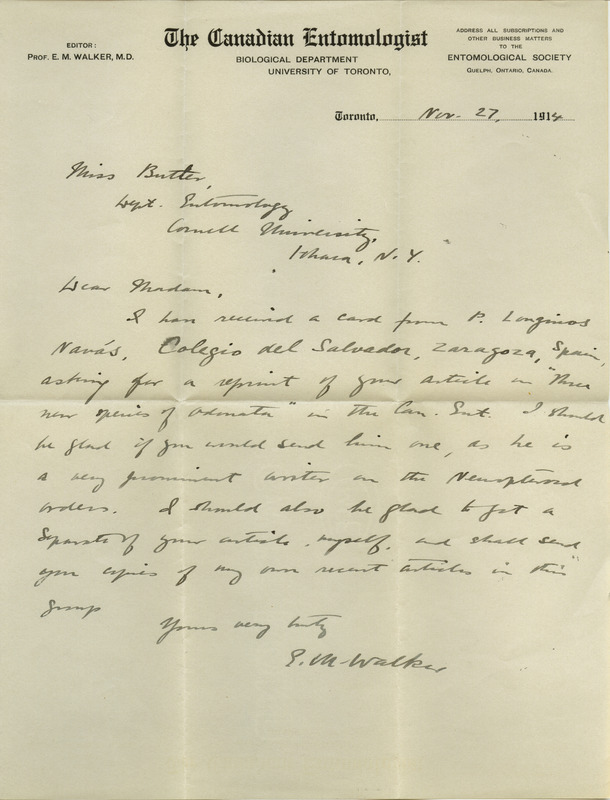 EDITOR:
PROF. E. M. WALKER, M.D.
The Canadian Entomologist
BIOLOGICAL DEPARTMENT
UNIVERSITY OF TORONTO,
ADDRESS ALL SUBSCRIPTIONS AND
OTHER BUSINESS MATTERS
TO THE
ENTOMOLOGICAL SOCIETY
GUELPH, ONTARIO, CANADA.
Toronto, Nov. 27, 1914
Miss Butler,
Dept. Entomology
Cornell University,
Ithaca, N.Y.
Dear Madam,
I have received a card from P. Longinos
Navás, Colegio del Salvador, Zaragoza, Spain,
asking for a reprint of your article on "Three
new species of Odonata" in the Can. Ent. I should
be glad if you would send him one, as he is
a very prominent writer on the Neuropteroid
orders. I should also be glad to get a
separate of your article, myself, and shall send
you copies of my own recent articles in this
group
Yours very truly
E. M. Walker